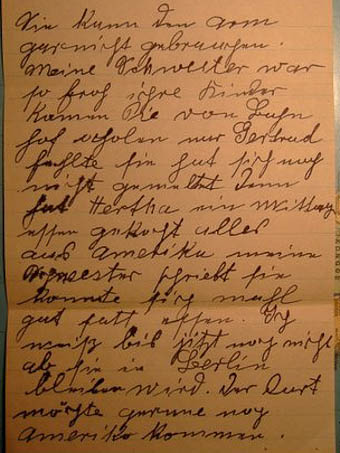 Sie kann den gom
gar nicht gebrauchen.
Meine Schwester war
so froh ihre Kinder
kamen Sie von Bahn
hof abholen nur Gertrud
fehlte sie hat sich noch
nicht gemeldet dann
hat Hertha ein Mittag
essen gekocht alles
aus Amerika meine
Schwester schriebt sie
konnte sich mahl
gut satt essen. Ich
weiß bis jitzt noch nicht
ab sie in Berlin
bleiben wird. Der Kurt
möchte gerne nog
Ameriko kommen.